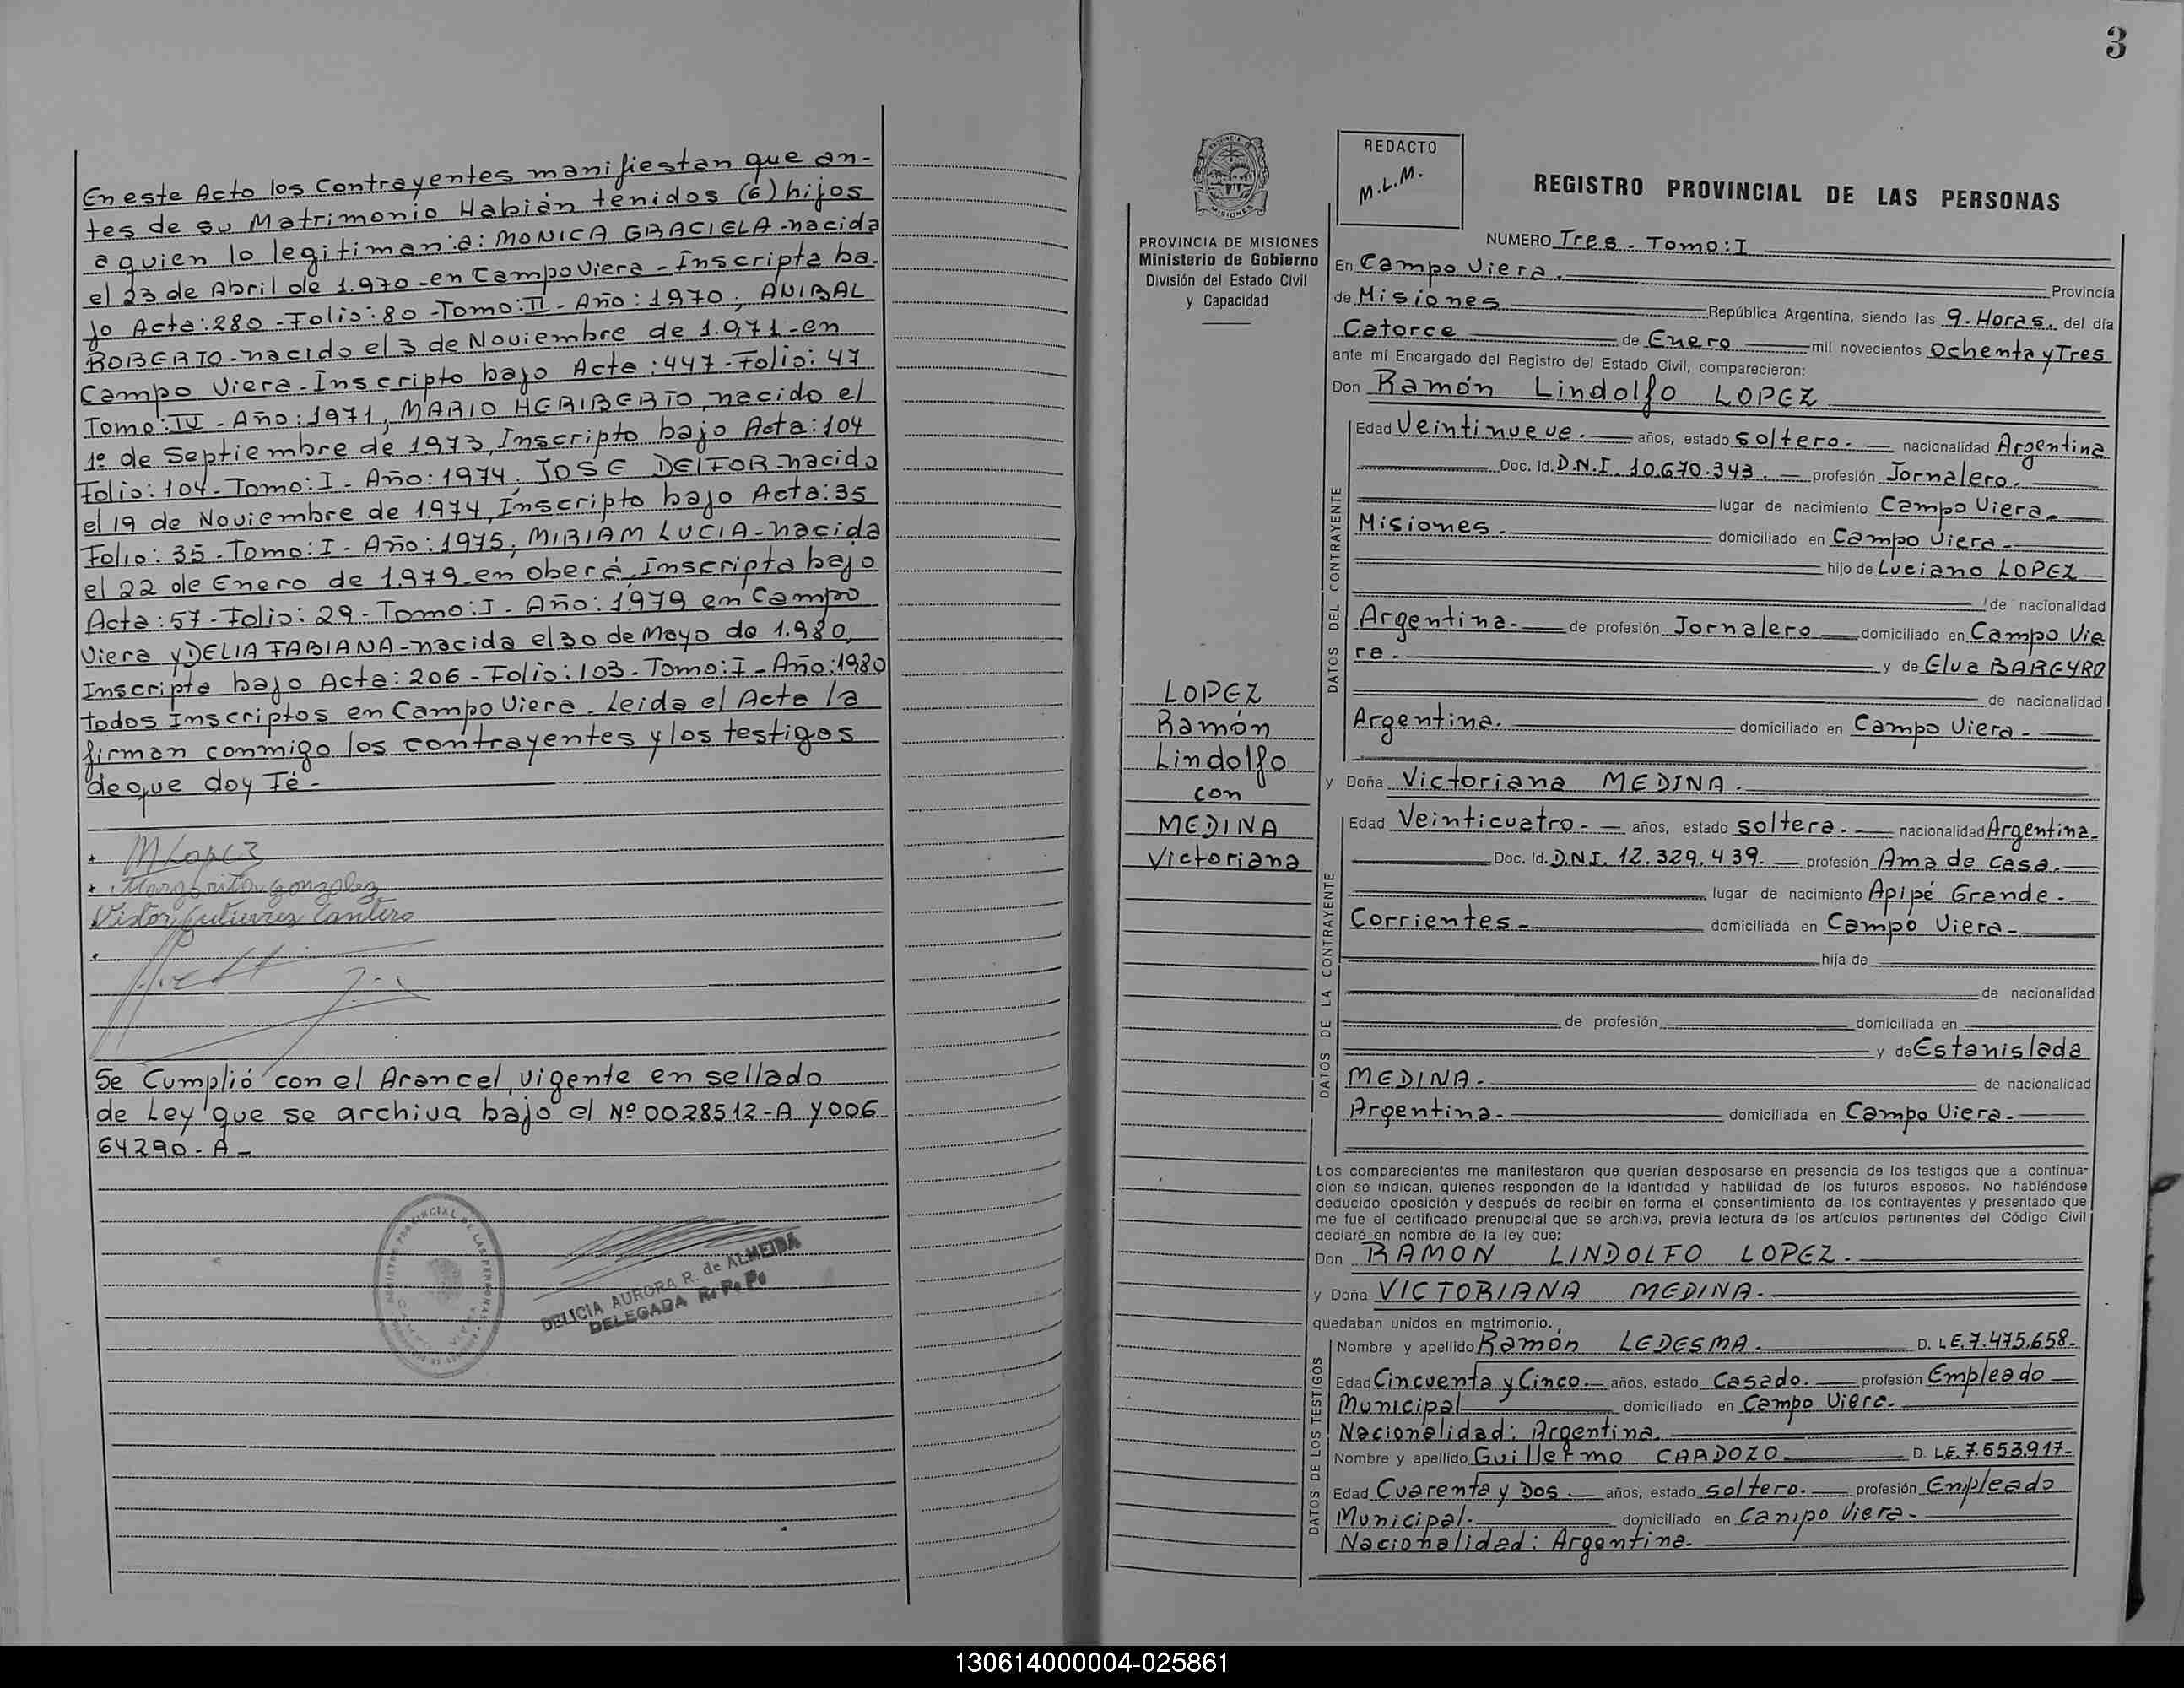 En este Acto los Contrayentes manifiestan que an-
tes de su Matrimonio Habián tenidos (6) hijos
a quien lo legitiman:a: MONICA GRACIELA-nacida
el 23 de Abril de 1.970-en Campo Viera-Inscripta ba-
jo Acta:280-Folio:80-Tomo:II-Año:1970; ANIBAL
ROBERTO-nacido el 3 de Noviembre de 1.971-en
Campo Viera-Inscripto bajo Acta:447-Folio:47
Tomo:IV-Año:1971, MARIO HERIBERTO, nacido el
1º de Septiembre de 1973, Inscripto bajo Acta:104
Folio:104-Tomo:I-Año:1974, JOSE DEIFOR-nacido
el 19 de Noviembre de 1974, Inscripto bajo Acta:35
Folio:35-Tomo:I-Año:1975; MIRIAM LUCIA-nacida
el 22 de Enero de 1979-en Oberá, Inscripta bajo
Acta:57-Folio:29-Tomo:I-Año:1979 en Campo
Viera y DELIA FABIANA-nacida el 30 de Mayo de 1.980,
Inscripta bajo Acta:206-Folio:103-Tomo:I-Año:1980
todos Inscriptos en Campo Viera. Leida el Acta la
firman conmigo los contrayentes y los testigos
de que doy Fé-
M Lopez
Margarita Gonzalez
Victor Gutierrez Cantero
Se Cumplió con el Arancel, vigente en sellado
de Ley que se archiva bajo el Nº 0028512-A y 006
64290-A-
DELICIA AURORA R. de ALMEIDA
DELEGADA R. P. P.
3
PROVINCIA DE MISIONES
Ministerio de Gobierno
División del Estado Civil
y Capacidad
LOPEZ
Ramón
Lindolfo
con
MEDINA
Victoriana
REDACTO
M.L.M.
REGISTRO PROVINCIAL DE LAS PERSONAS
NUMERO Tres-Tomo:I
En Campo Viera. Provincia
de Misiones República Argentina, siendo las 9-Horas, del día
Catorce de Enero mil novecientos Ochenta y Tres
ante mí Encargado del Registro del Estado Civil, comparecieron:
Don Ramón Lindolfo LOPEZ
DATOS DEL CONTRAYENTE
Edad Veintinueve.- años, estado soltero.- nacionalidad Argentina
Doc. Id. D.N.I. 10.670.343.- profesión Jornalero.
lugar de nacimiento Campo Viera-
Misiones. domiciliado en Campo Viera-
hijo de Luciano LOPEZ
de nacionalidad
Argentina.- de profesión Jornalero domiciliado en Campo Vie
ra. y de Elva BAREYRO
de nacionalidad
Argentina. domiciliado en Campo Viera-
y Doña Victoriana MEDINA.
DATOS DE LA CONTRAYENTE
Edad Veinticuatro.- años, estado soltera.- nacionalidad Argentina.
Doc. Id. D.N.I. 12.329.439.- profesión Ama de casa.
lugar de nacimiento Apipé Grande-
Corrientes- domiciliada en Campo Viera-
hija de
de nacionalidad
de profesión domiciliada en
y de Estanislada
MEDINA- de nacionalidad
Argentina- domiciliada en Campo Viera-
Los comparecientes me manifestaron que querían desposarse en presencia de los testigos que a continua-
ción se indican, quienes responden de la identidad y habilidad de los futuros esposos. No habiéndose
deducido oposición y después de recibir en forma el consentimiento de los contrayentes y presentado que
me fue el certificado prenupcial que se archiva, previa lectura de los artículos pertinentes del Código Civil
declaré en nombre de la ley que:
Don RAMON LINDOLFO LOPEZ.
y Doña VICTORIANA MEDINA.
quedaban unidos en matrimonio.
DATOS DE LOS TESTIGOS
Nombre y apellido Ramón LEDESMA. D. LE.7.475.658-
Edad Cincuenta y Cinco.- años, estado Casado.- profesión Empleado
Municipal domiciliado en Campo Viera.
Nacionalidad: Argentina.
Nombre y apellido Guillermo CARDOZO. D. LE.7.653.917-
Edad Cuarenta y Dos- años, estado soltero.- profesión Empleado
Municipal- domiciliado en Campo Viera-
Nacionalidad: Argentina-
130614000004-025861